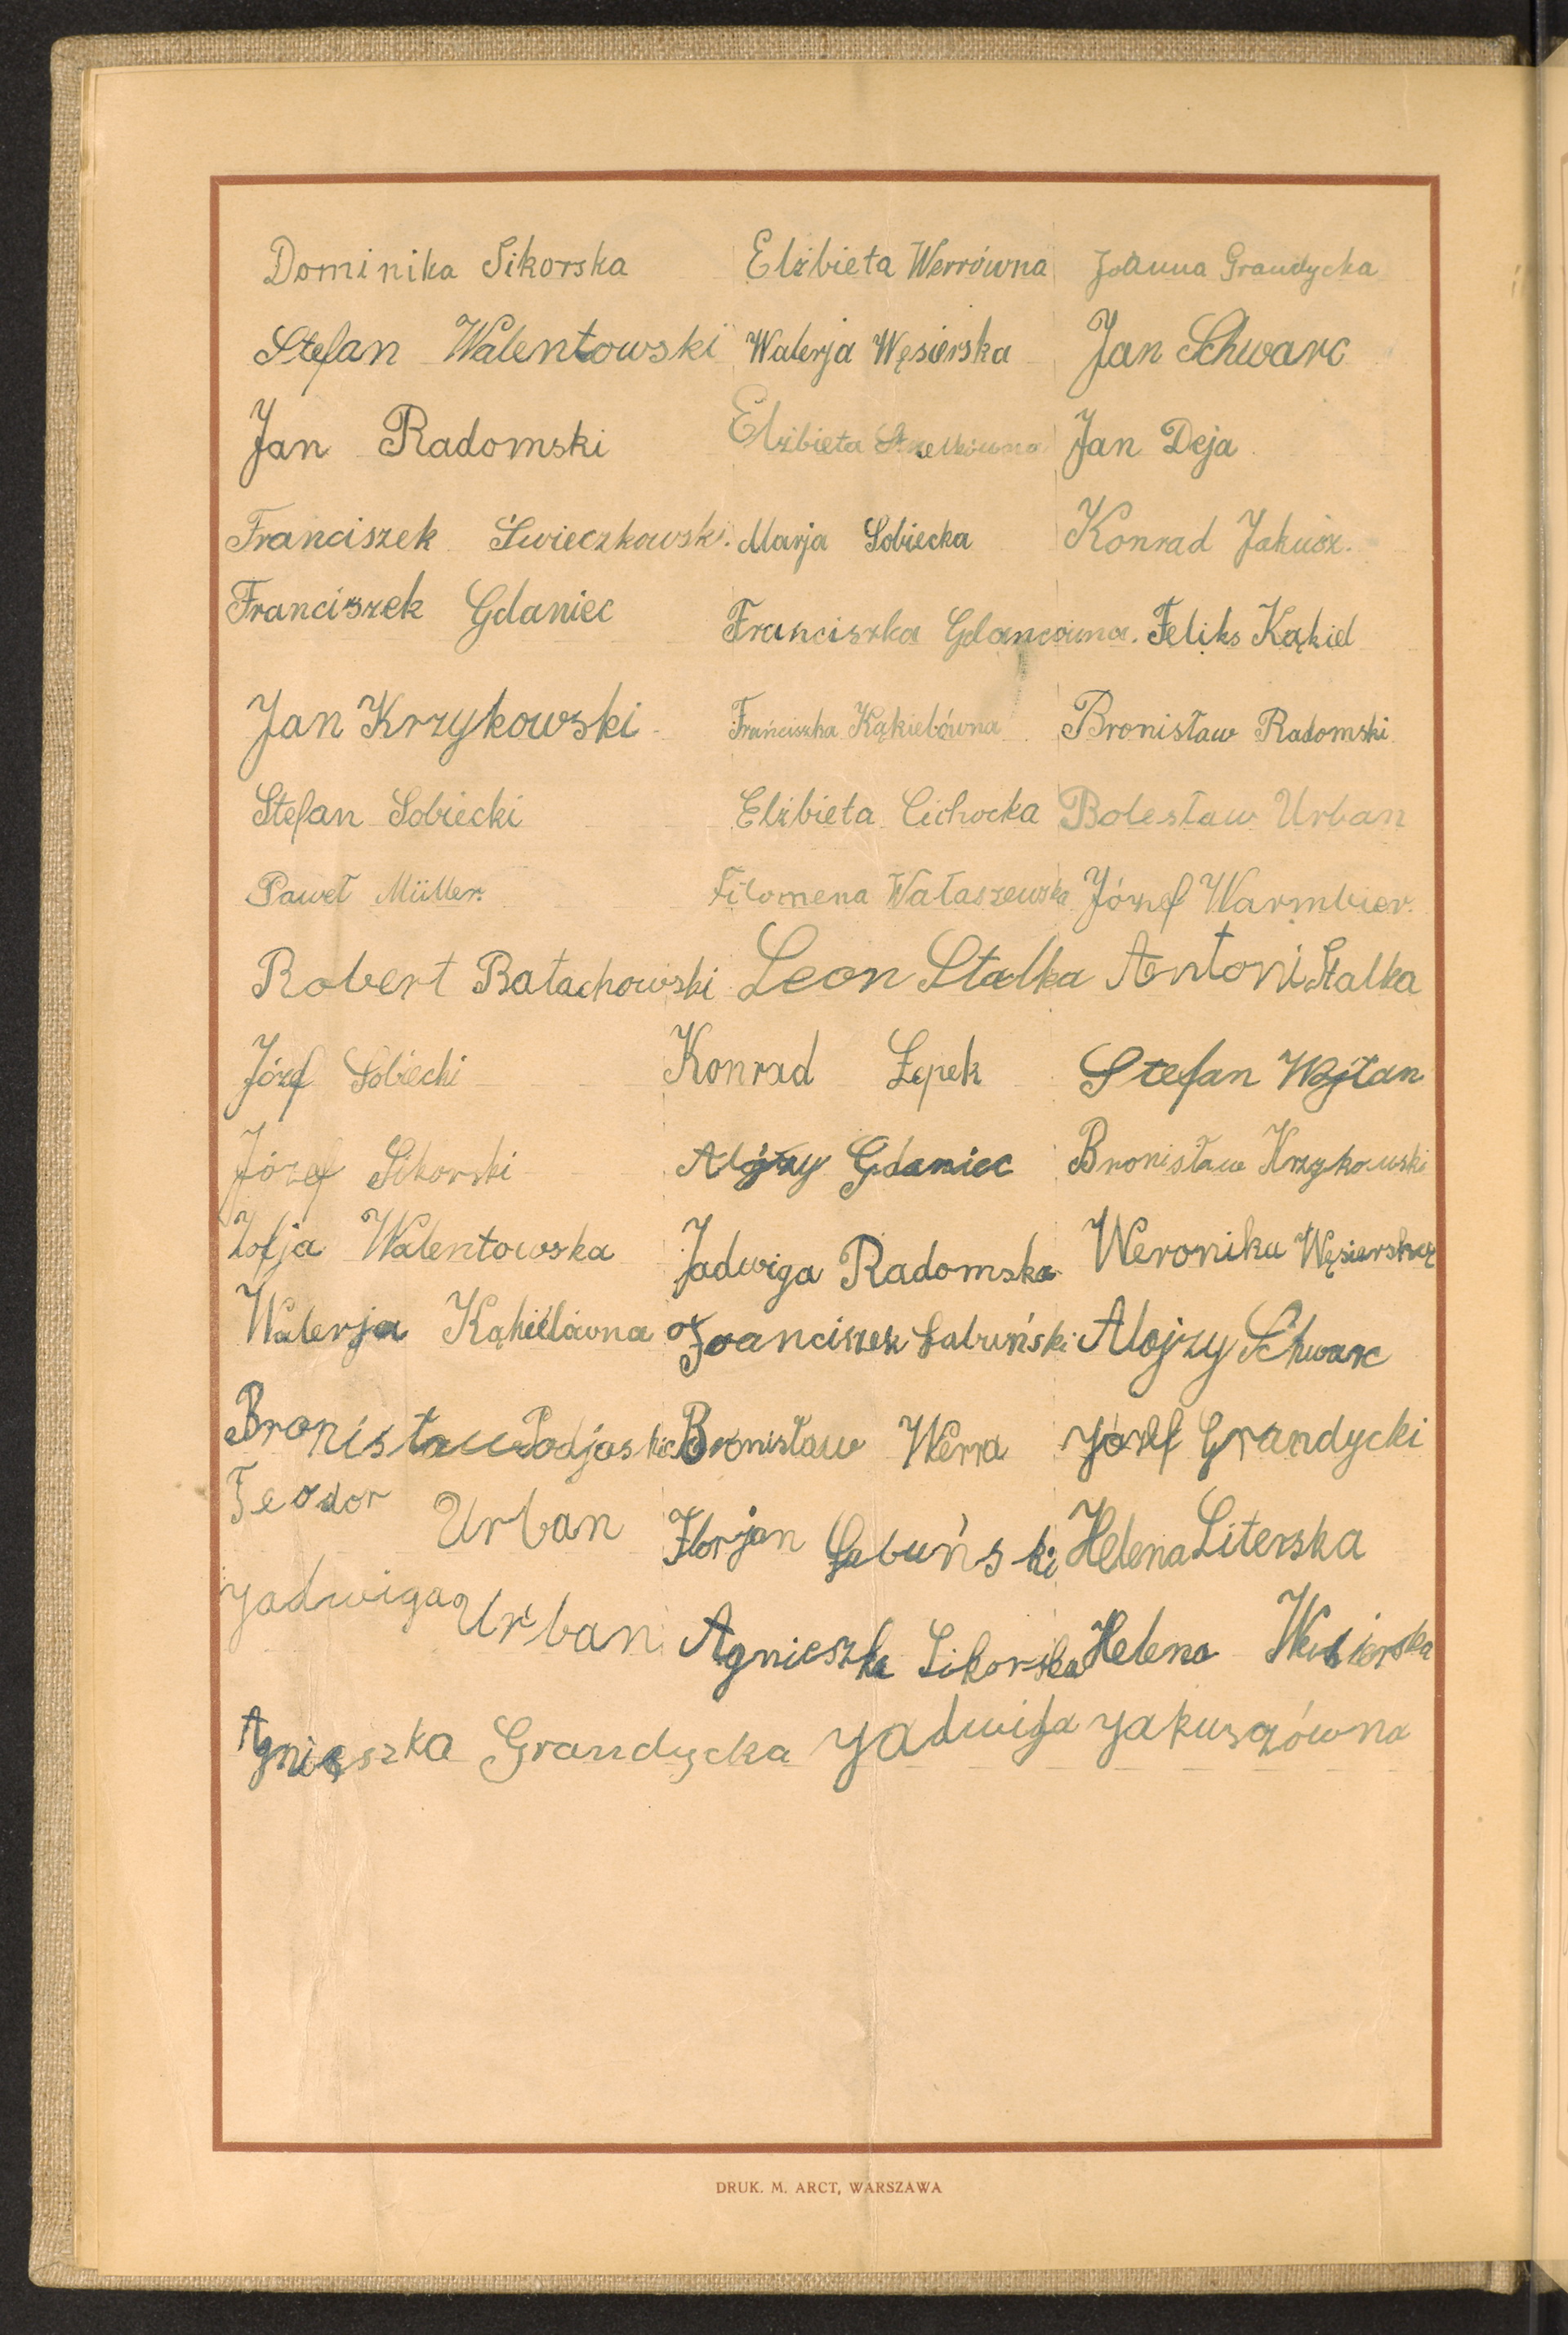 Dominika Sikorska Elżbieta Werrówna Joanna Grandycka
Stefan Walentowski Walerja Węsierska Jan Schwarc
Jan Radomski Elżbieta Jan Deja
Franciszek Świeczkowski. Marja Sobiecka Konrad Jakusz.
Franciszek Gdaniec Franciszka Gdancówna. Feliks Kąkiel
Jan Krzykowski Franciszka Kąkielówna Bronisław Radomski
Stefan Sobiecki Elżbieta Cichocka Bolesław Urban
Paweł Müller. Filomena Wałaszewska Józef Warmbier.
Robert Bałachowski Leon Stalka Antoni Stalka
Józef Sobiecki Konrad Łepek Stefan Wojtan
Józef Sikorski Alojzy Gdaniec Bronisław Krzykowski
Zofja Walentowska Jadwiga Radomska Weronika Węsierska
Walerja Kąkielówna Franciszek Łabuński Alojzy Schwarc
Bronisław Podjaski Bronisław Werra Józef Grandycki
Teodor Urban Florjan Łabuński Helena Literska
Jadwiga Urban Agnieszka Sikorska Helena Wesierska
Agnieszka Grandycka Jadwiga Jakuszówna
DRUK. M. ARCT, WARSZAWA